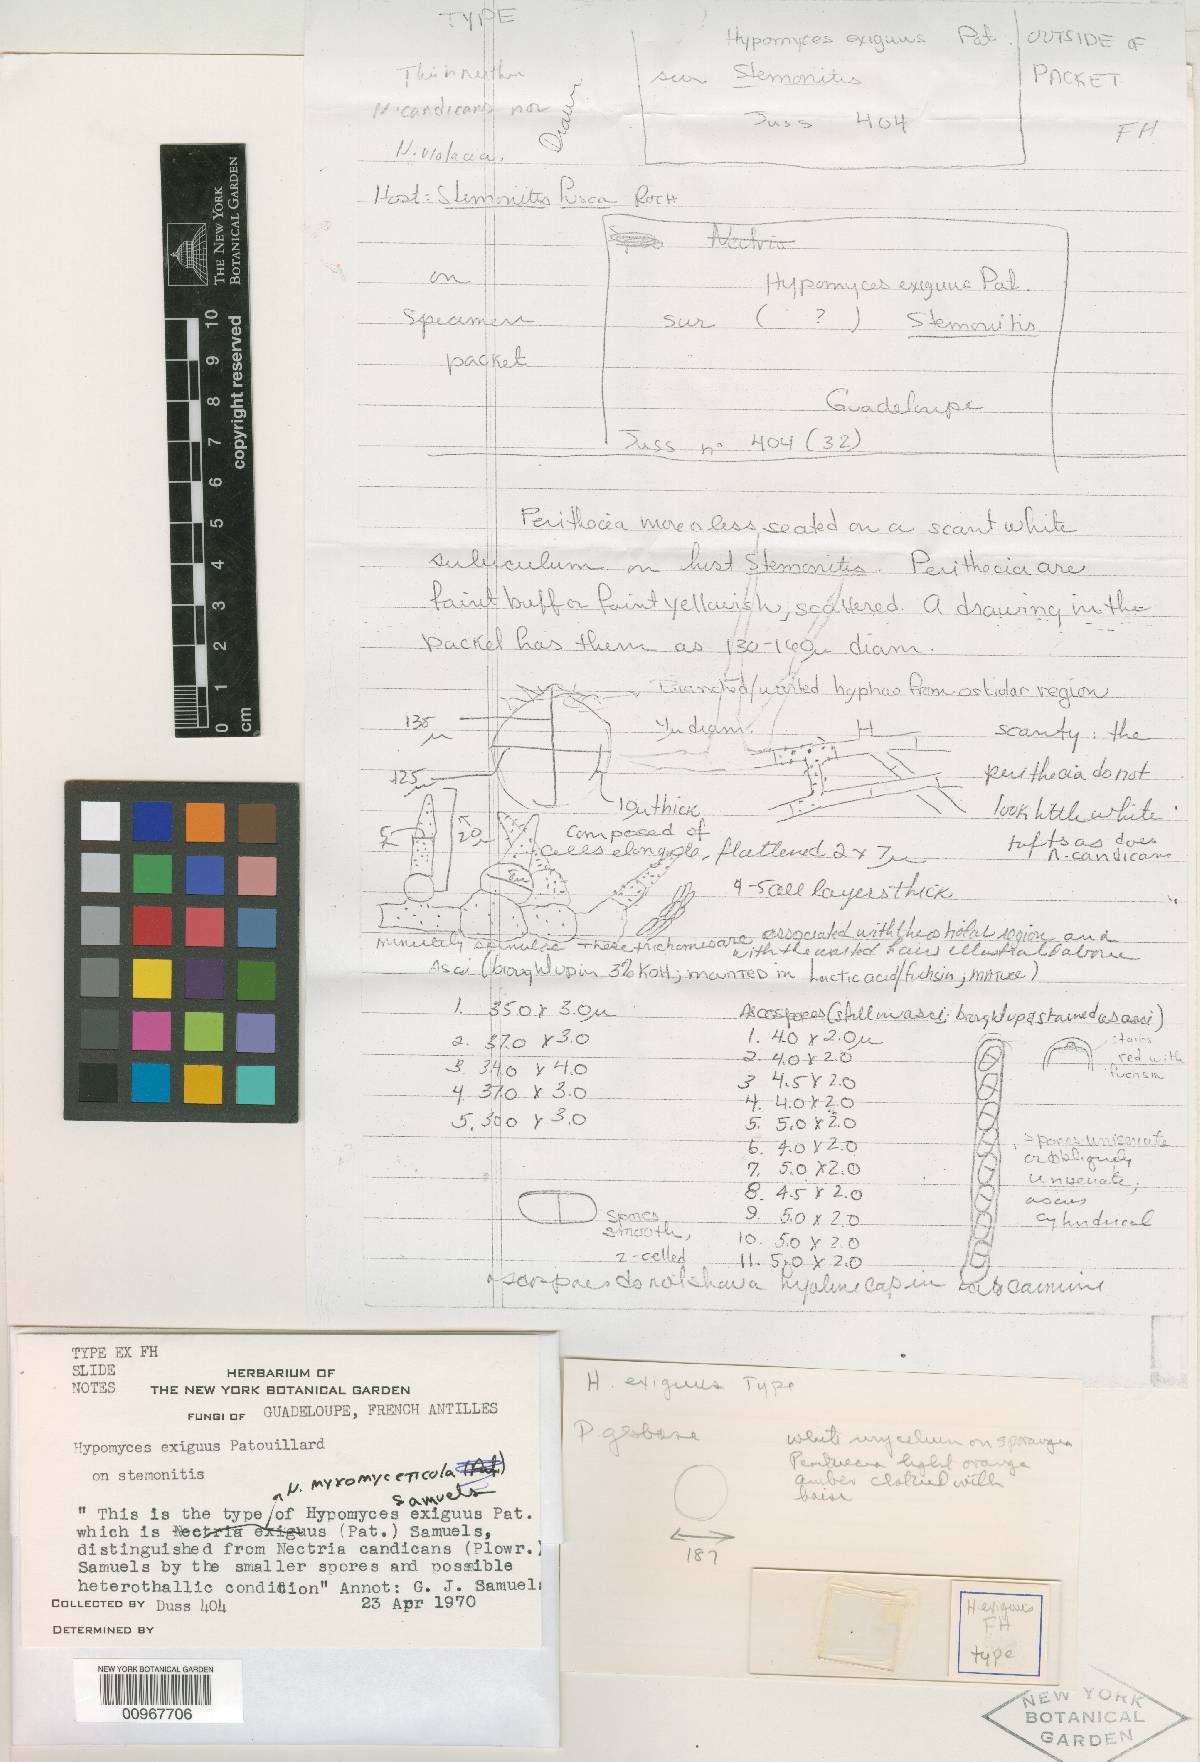 TYPE
Hypomyces exiguus Pat.
sur Stemonitis
Duss 404
OUTSIDE OF
PACKET
FH
This is neither
N. candicans nor
N. violacea.
Drawn
Host: Stemonitis fusca ROTH
on
specimen
packet
Nectria
Hypomyces exiguus Pat.
sur ( ? ) Stemonitis
Guadeloupe
Duss n° 404 (32)
Perithecia more or less seated on a scant white
subiculum on host Stemonitis. Perithecia are
faint buff or faint yellowish, scattered. A drawing in the
packet has them as 130-160µ diam.
Branched/warted hyphae from ostiolar region
135
µ
125
µ
diam.
scanty: the
perithecia do not
look little white
tufts as does
N. candicans
10µ thick
composed of
cells elongate, flattened 2 x 7µ
20µ
4-5 cell layers thick
minutely spinulose These trichomes are associated with the ostiolar region and
with the warted hairs illustrated above
Asci (brought up in 3% KOH; mounted in Lactic acid/fuchsin; MATURE)
1. 35.0 x 3.0µ
2. 37.0 x 3.0
3. 34.0 x 4.0
4. 37.0 x 3.0
5. 30.0 x 3.0
Ascospores (still in asci; brought up & stained as asci)
1. 4.0 x 2.0µ
2. 4.0 x 2.0
3. 4.5 x 2.0
4. 4.0 x 2.0
5. 5.0 x 2.0
6. 4.0 x 2.0
7. 5.0 x 2.0
8. 4.5 x 2.0
9. 5.0 x 2.0
10. 5.0 x 2.0
11. 5.0 x 2.0
stains
red with
fuchsin
spores uniseriate
or obliquely
uniseriate;
ascus
cylindrical
spores
smooth,
2-celled
Ascospores do not have a hyaline cap in
THE NEW YORK
BOTANICAL GARDEN
copyright reserved
10
9
8
7
6
5
4
3
2
1
0
cm
TYPE EX FH
SLIDE
NOTES
HERBARIUM OF
THE NEW YORK BOTANICAL GARDEN
FUNGI OF GUADELOUPE, FRENCH ANTILLES
Hypomyces exiguus Patouillard
on stemonitis
N. myxomyceticola (Pat.)
Samuels
" This is the type of Hypomyces exiguus Pat.
which is Nectria exiguus (Pat.) Samuels,
distinguished from Nectria candicans (Plowr.)
Samuels by the smaller spores and possible
heterothallic condition" Annot: G. J. Samuels
COLLECTED BY Duss 404 23 Apr 1970
DETERMINED BY
NEW YORK BOTANICAL GARDEN
00967706
H. exiguus Type
P globose
white mycelium on sporangia
Perithecia light orange
amber clothed with
hairs
187
H exiguus
FH
type
NEW YORK
BOTANICAL
GARDEN